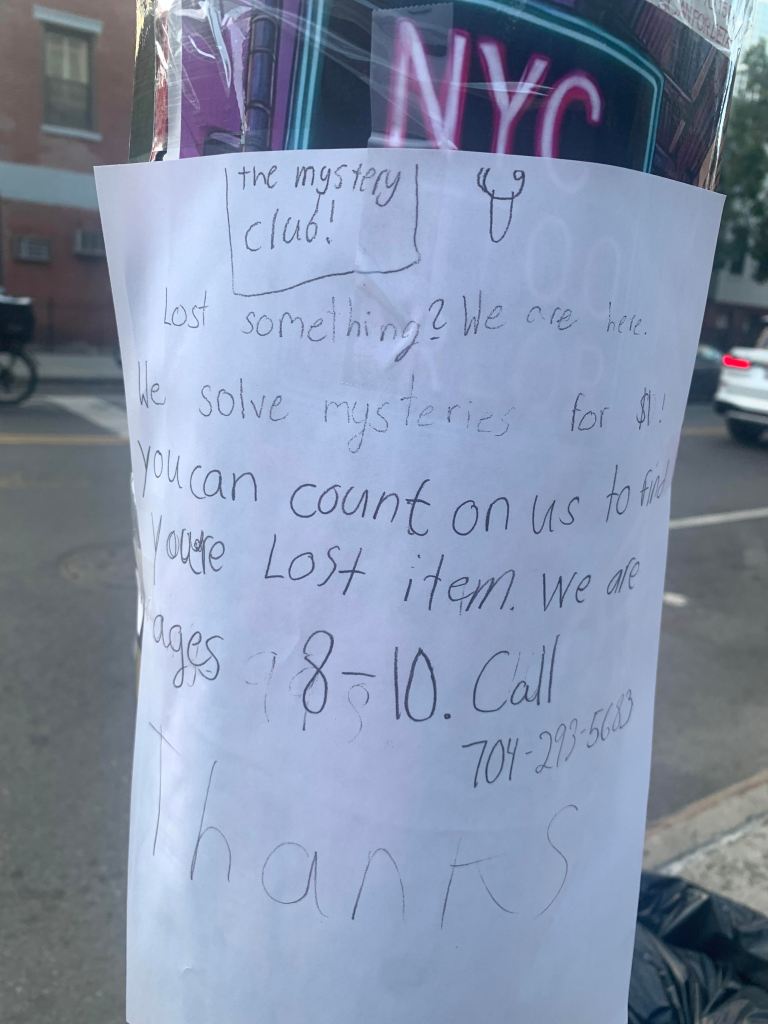 NYC
the mystery
club!
Lost something? We are here.
We solve mysteries for $1!
you can count on us to find
youre Lost item. We are
ages 8-10. Call
704-293-5683
Thanks